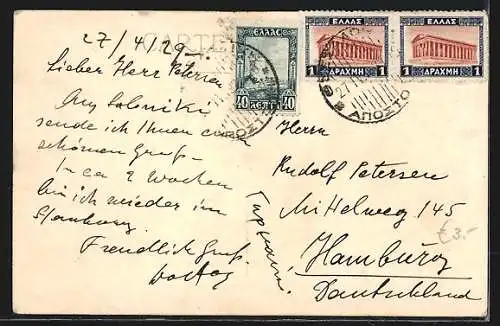 27/4/29
CARTE
Lieber Herr Petersen
Aus Saloniki
sende ich Ihnen einen
schönen Gruß.
In ca 2 Wochen
bin ich wieder in
Hamburg
Freundlich Gruß.
ΕΛΛΑΣ
40 ΛΕΠΤ 40
ΕΛΛΑΣ
1 ΔΡΑΧΜΗ 1
ΕΛΛΑΣ
1 ΔΡΑΧΜΗ 1
ΑΠΟΣΤ
27
ΑΠΟΣΤΟ
Herrn
Rudolf Petersen
Mittelweg 145
Hamburg
Deutschland
Γερμανία
£3.-